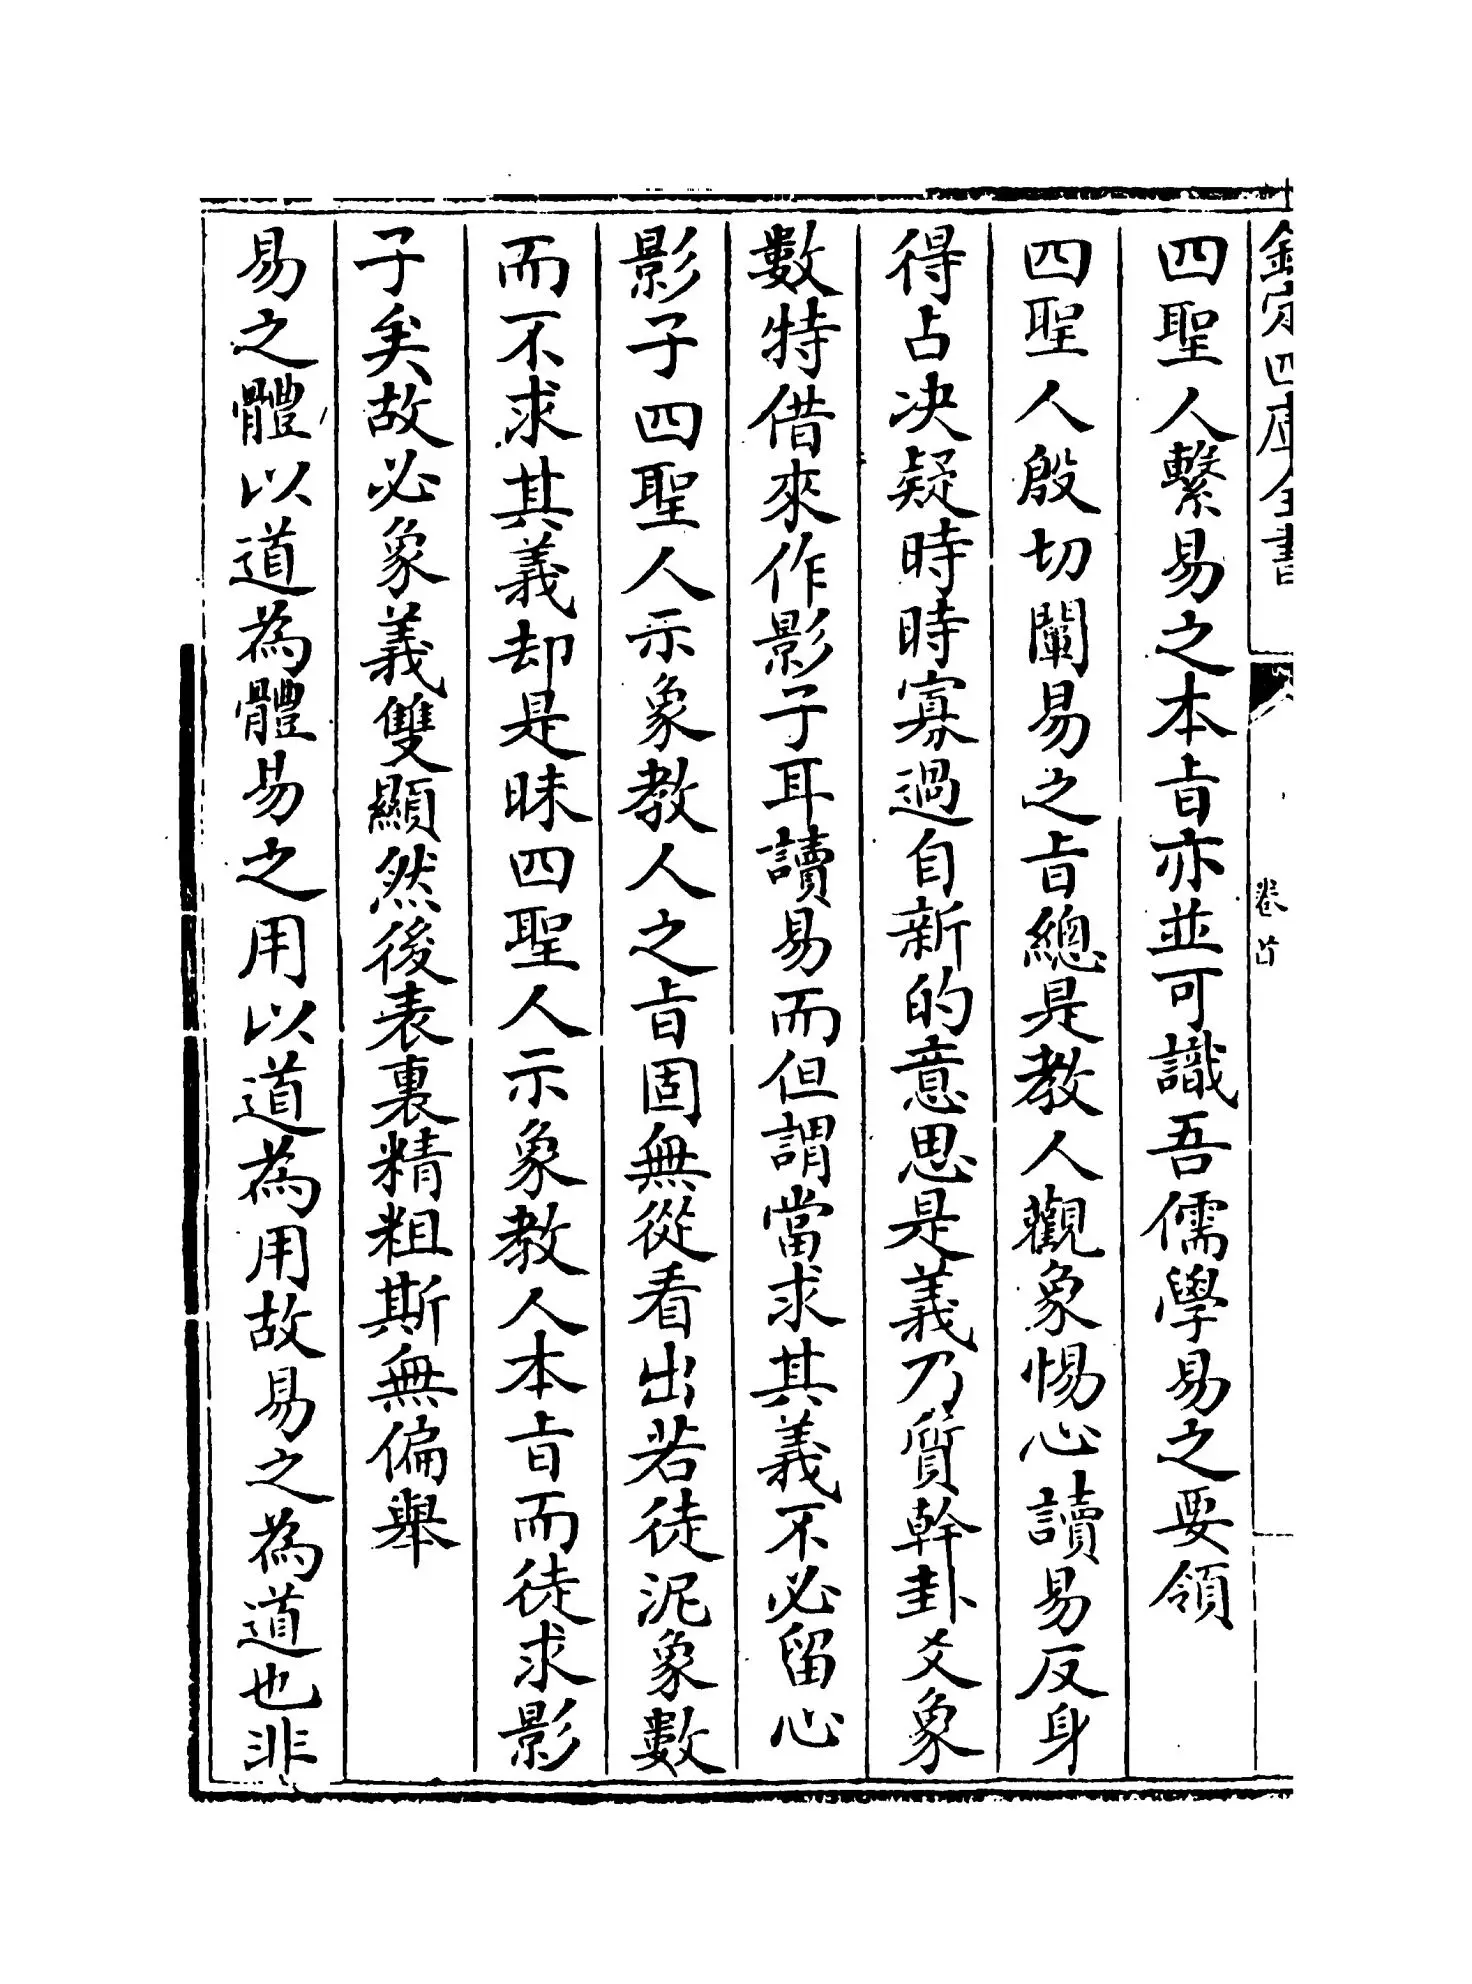 欽定四庫全書
卷首
四聖人繫易之本旨亦並可識吾儒學易之要領
四聖人殷切闡易之旨總是教人觀象惕心讀易反身
得占决疑時時寡過自新的意思是義乃質幹卦爻象
數特借來作影子耳讀易而但謂當求其義不必留心
影子四聖人示象教人之旨固無從看出若徒泥象數
而不求其義却是昧四聖人示象教人本旨而徒求影
子矣故必象義雙顯然後表裏精粗斯無偏舉
易之體以道為體易之用以道為用故易之為道也非